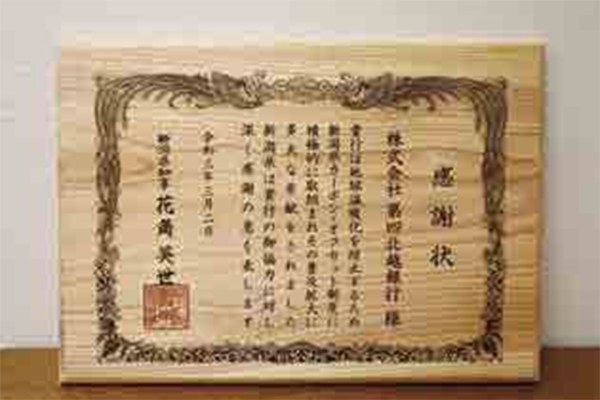 感謝状
株式会社 第四北越銀行 様
貴行は地球温暖化を防止するため
新潟県カーボン・オフセット制度に
積極的に取組まれその普及拡大に
多大な貢献をされました
新潟県は貴行の御協力に対し
深く感謝の意を表します
令和三年三月二日
新潟県知事 花角英世